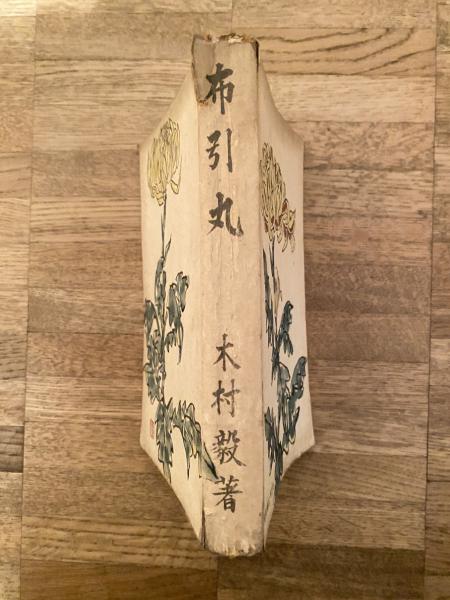 布引丸
木村毅著